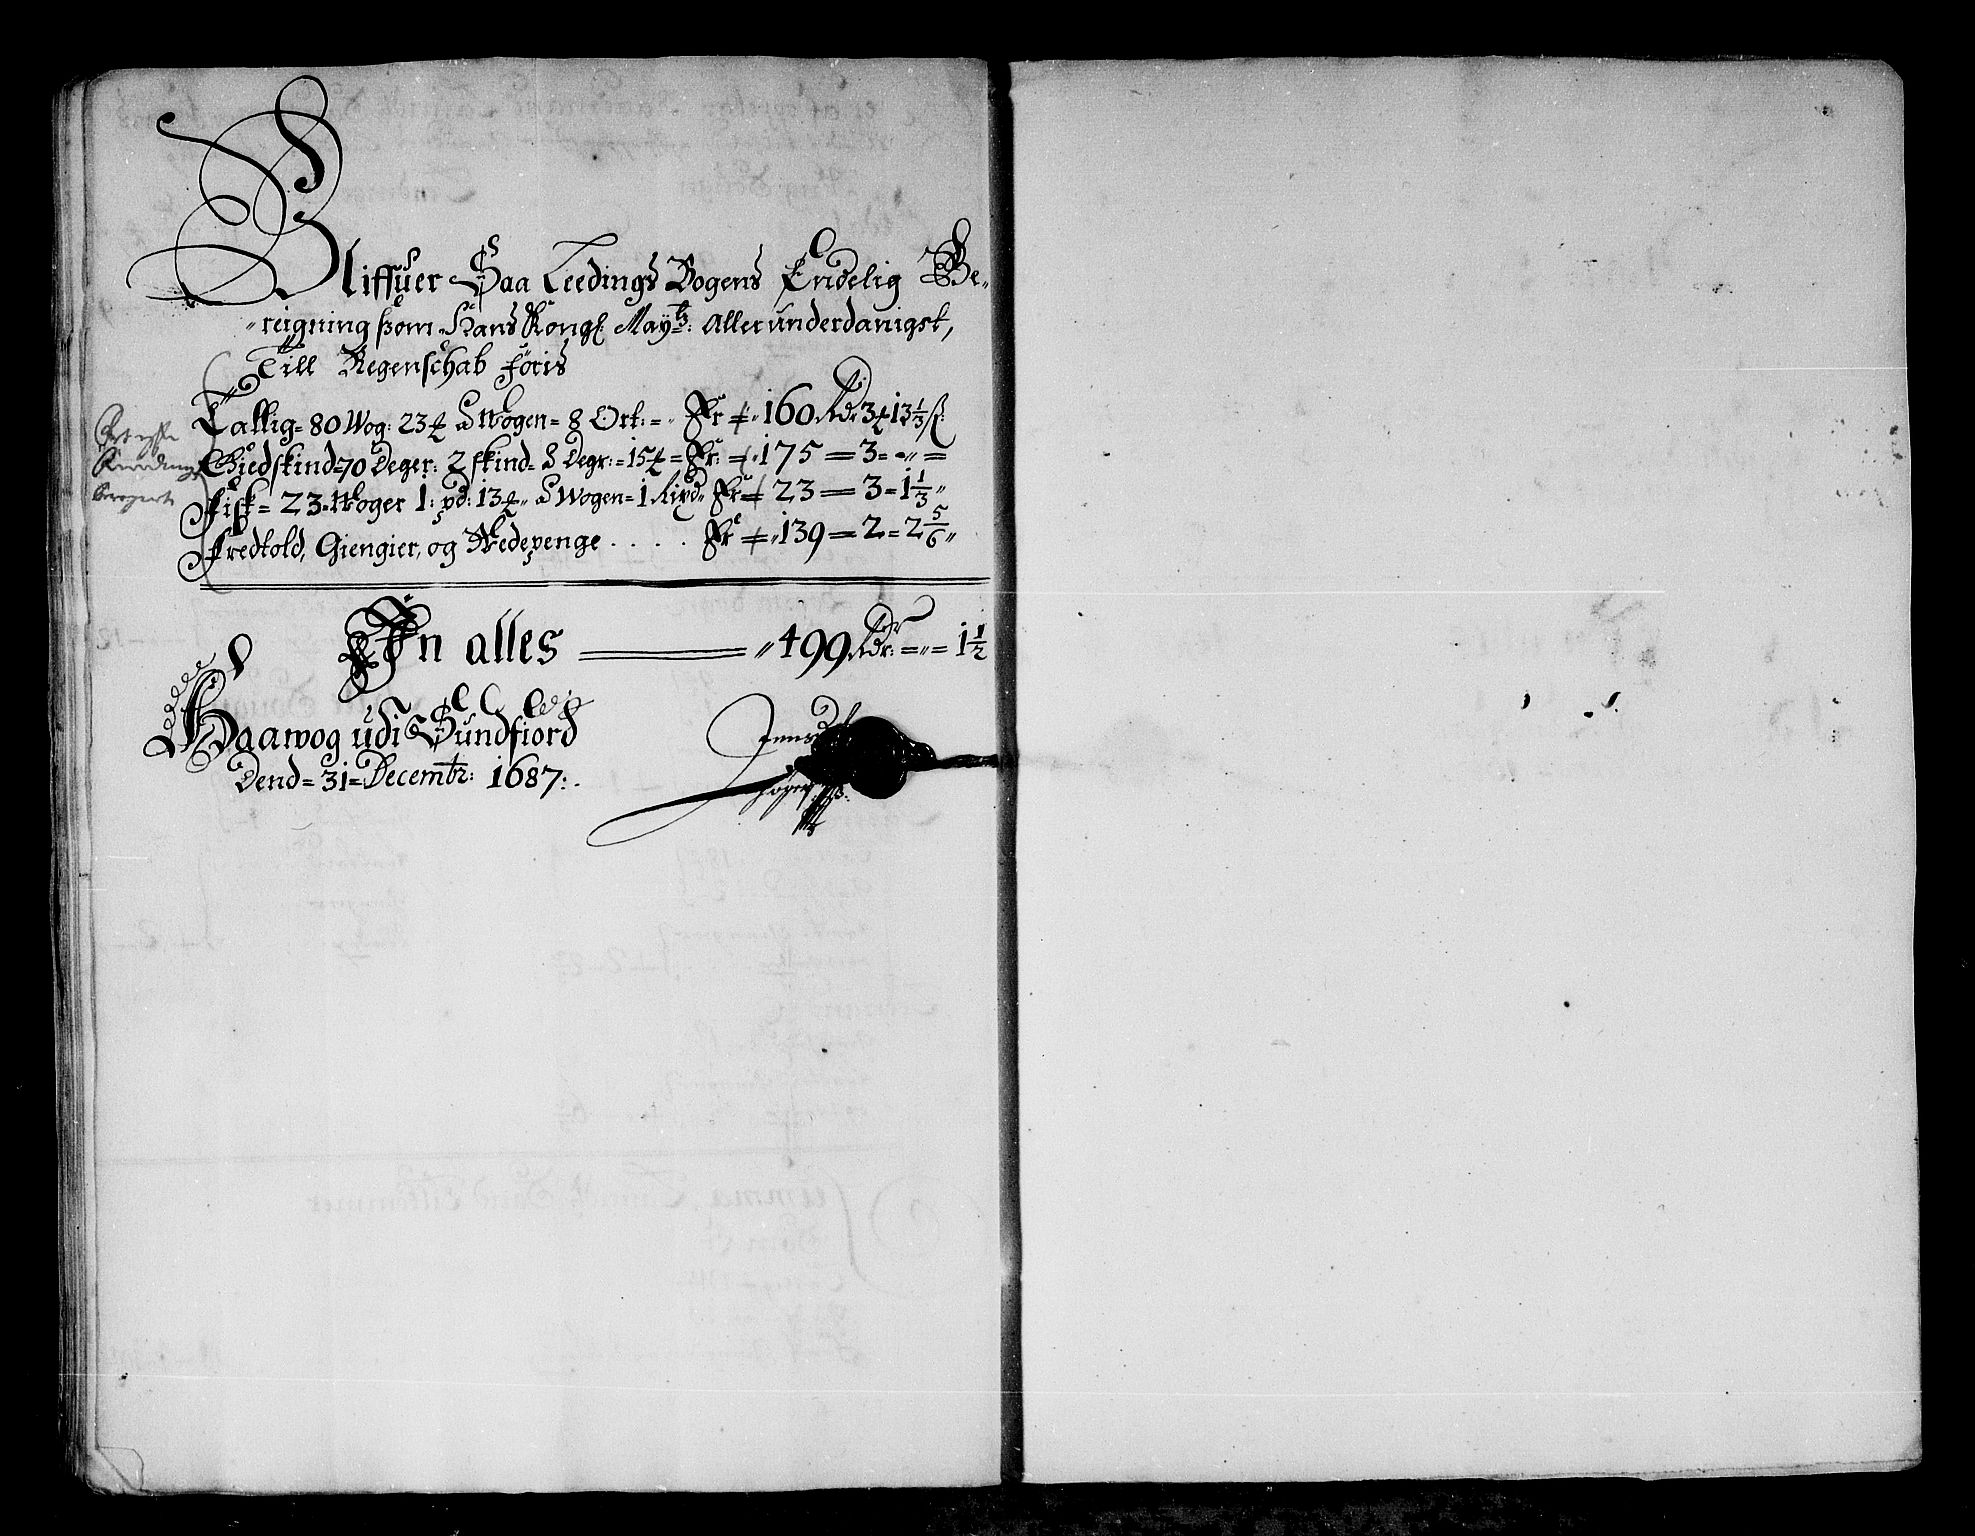 Bliffuer Saa Leedings Bogens Endelig Be-
reigning som Hans Kongl. Mayts: Allerunderdanigst,
Till Regenschab föris
Tallig= 80 Wog: 23 ℔ a Wogen= 8 Ort:= Er = 160 Rdr 3 ℔ 13 1/3 ß:
Giedskind= 70 Deger: 2 skind= a Degr:= 15 ℔ = Er: = 175 = 3 = " =
Fisk = 23 Woger 1: pd: 13 ℔ a Wogen= 1 Rixd Er = 23 = 3 = 1 1/3 "
Fredtold, Giengier, og Wedepenge . . . . Er = 139 = 2 = 2 5/6 "
In alles = 499 Rdr: = " = 1 1/2
Haawog udi Sundfiord
Dend= 31= Decembr: 1687:.
Jens